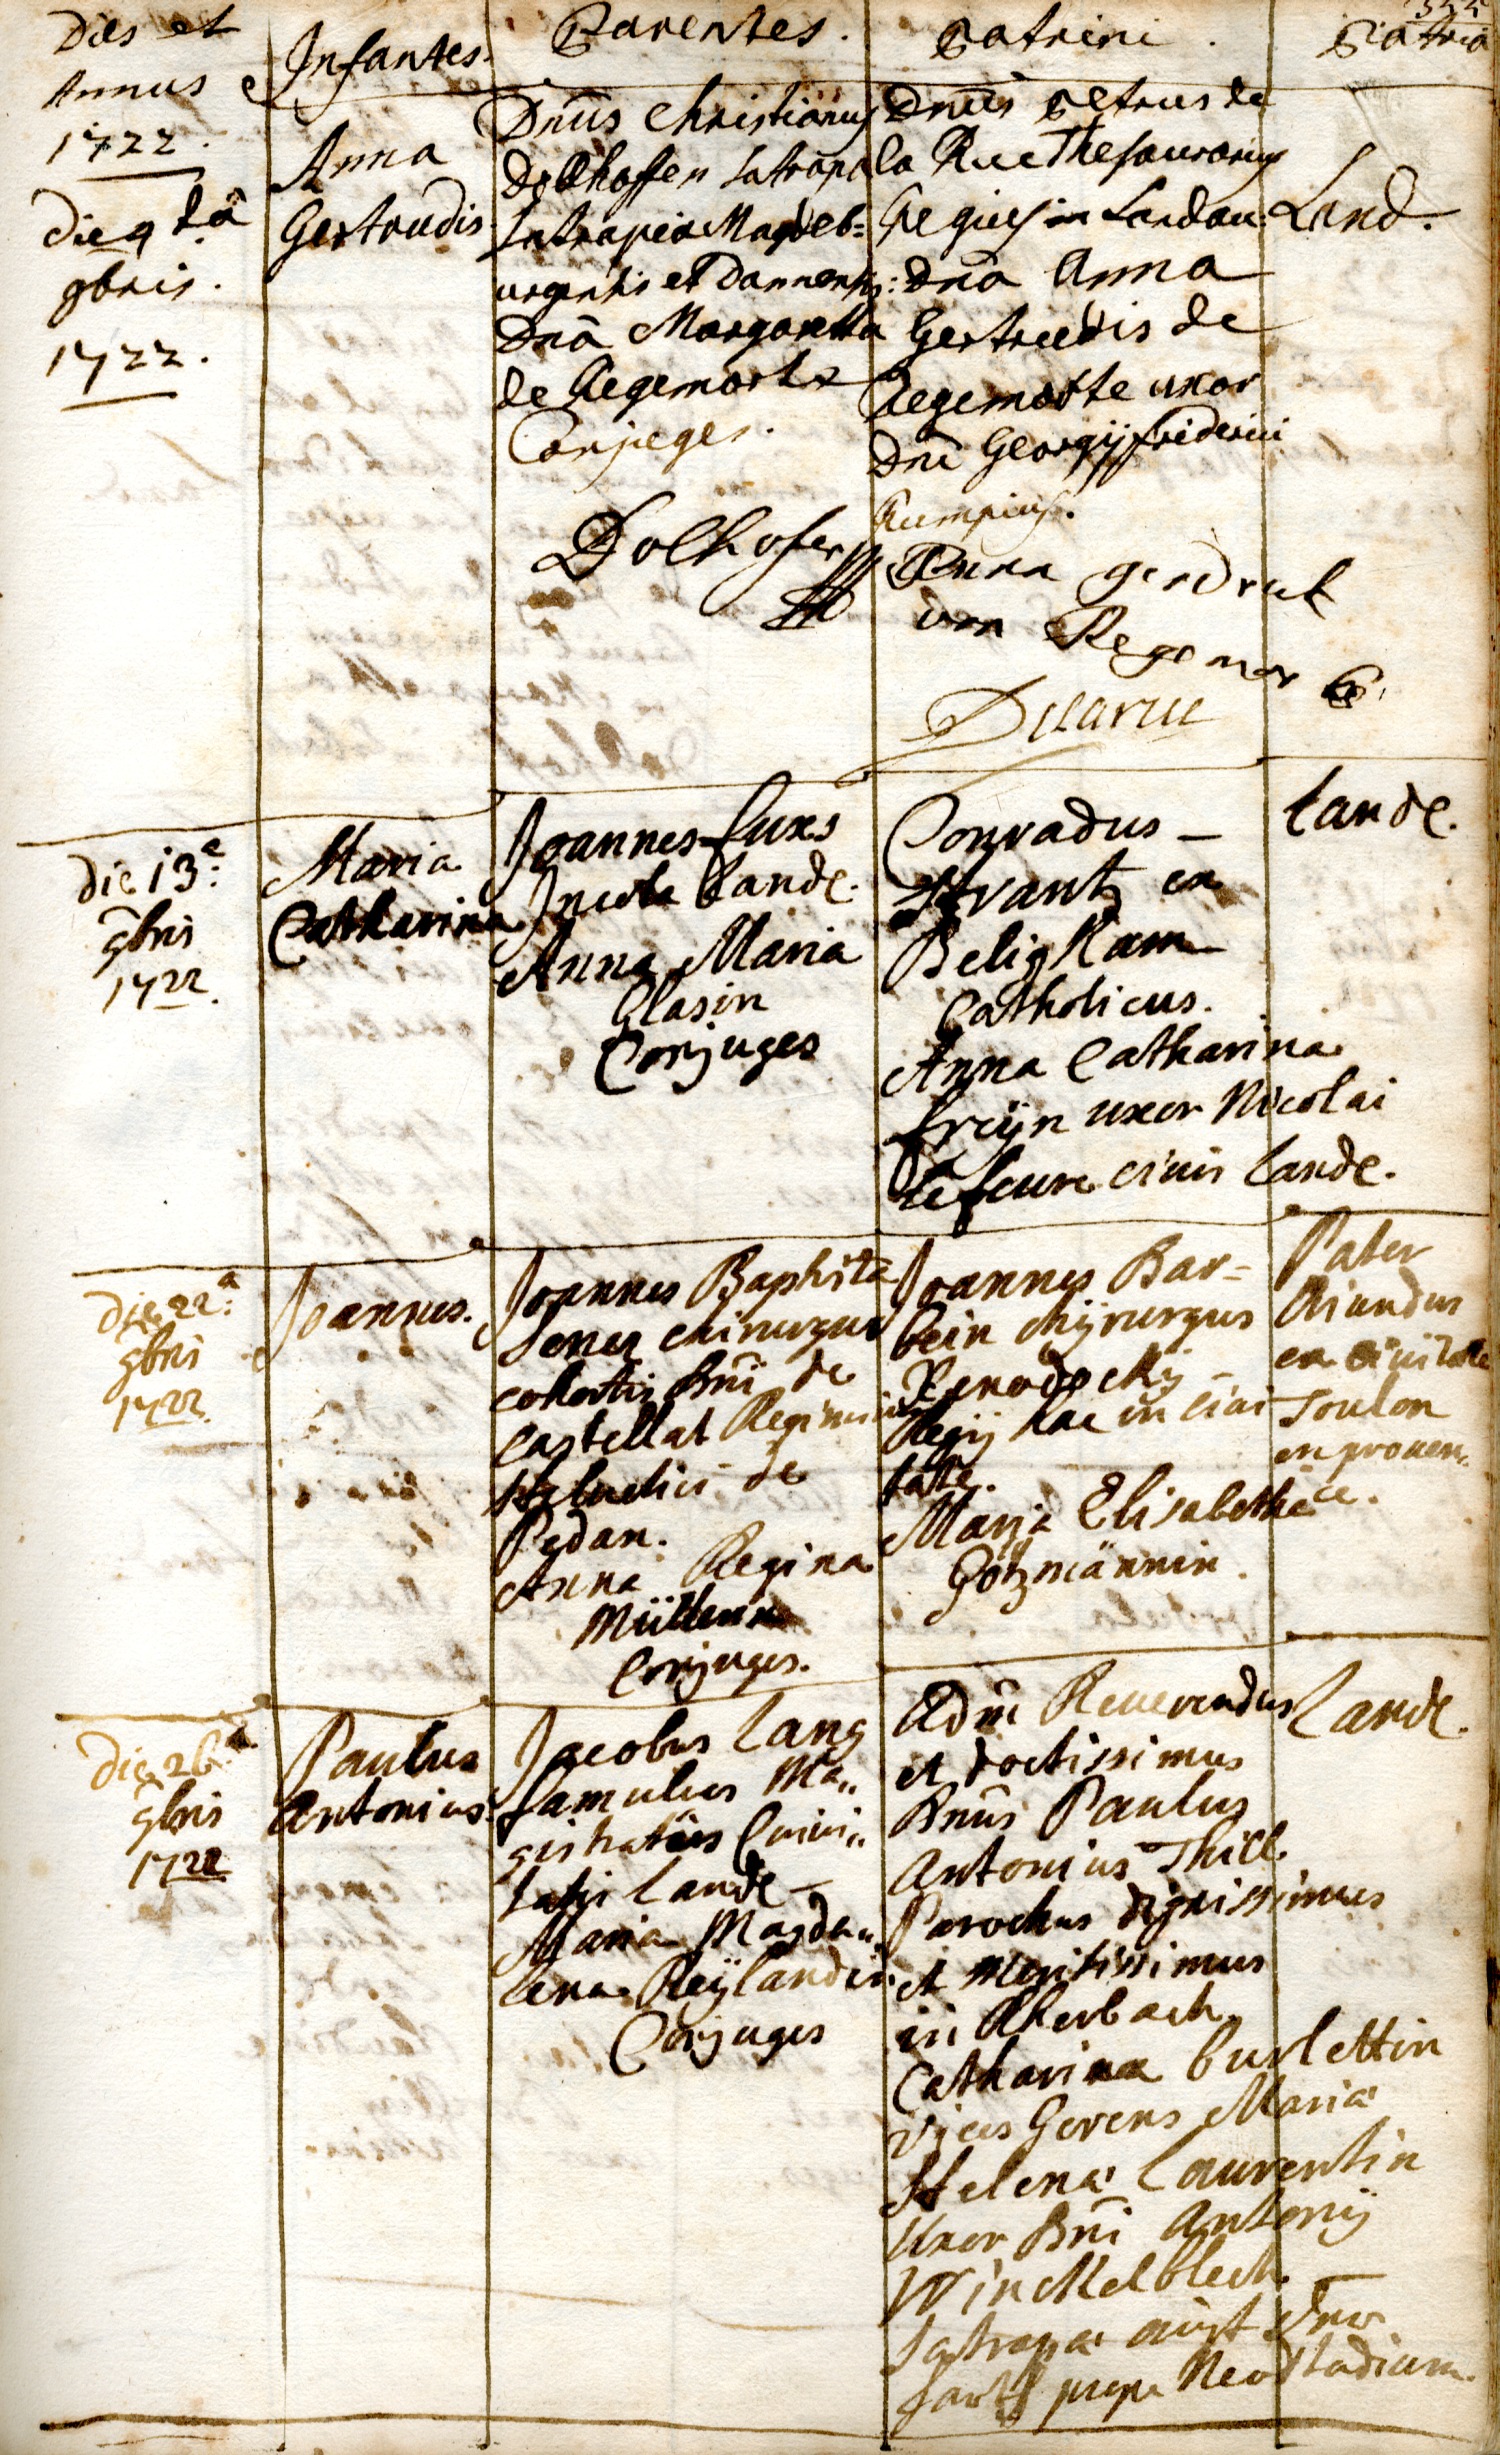 Dies et
Annus
1722.
Infantes.
Parentes.
Patrini.
Patria
die 9 ta
9bris.
1722.
Anna
Gertrudis
Dnus Christianus
Dolhoffen satrapa
satrapiae Magdeb=
urgensis et Dannensis:
Dna Margaretha
de Regemorte
Conjuges.
Dolhofer
Dnus Petrus de
la Rue Thesaurarius
Regius in Landau:
Dna Anna
Gertrudis de
Regemorte uxor
Dni Georgij friderici
Rumpius.
Anna gerdrut
von Regemor
Delarue
Land.
die 13a
9bris
1722.
Maria
Catharina
Joannes Luxs
Incola Lande.
Anna Maria
Glasin
Conjuges
Conradus –
Strantz ex
Beligkam
Catholicus.
Anna Catharina
freijn uxor Nicolai
lefeure civis Lande.
Lande.
die 22a
9bris
1722.
Joannes.
Joannes Baptista
Senez chirurgus
cohortis Dni de
castellat Regiminis
Helvetici de
Pedan.
Anna Regina
Müllerin
Conjuges.
Joannes Bar=
bein chijrurgus
Regij hac in civi
tate.
Maria Elisabetha
Götzmännin.
Pater
oriundus
ex civitate
Toulon
en proven
ce.
die 26.a
9bris
1722
Paulus
Antonius.
Jacobus Lang
famulus Ma„
gistratûs Civi„
tatis Lande –
Maria Magda„
lena Reÿlandin
Conjuges
Adm Reverendus
et doctissimus
Dnus Paulus
Antonius Thill
Parochus dignissimus
et meritissimus
in Rherbach
Catharina burlettin
vices Gerens Maria
Helena Laurentin
Uxor Dni Antonij
Winckelblech.
Satrapa
hartz prope Neostadium.
Lande.